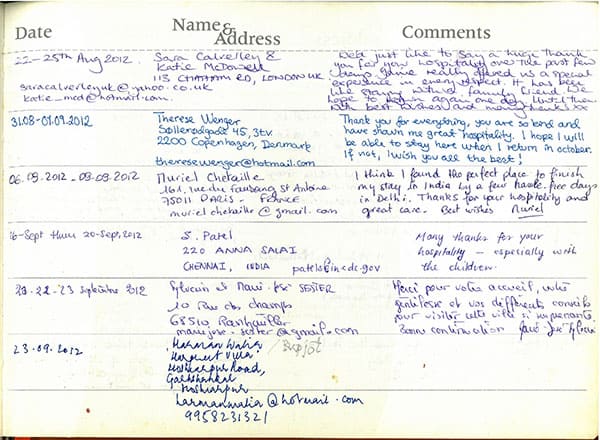 Date Name & Address Comments
22-25th Aug 2012 Sara Calverley &
Katie McDowell
113 CHATHAM RD, LONDON UK
saracalverleyuk@yahoo.co.uk
katie_mcd@hotmail.com
We'd just like to say a huge thank
you for your hospitality over the past few
days. You've really offered us a special
experience in every respect. It has been
like staying with a family friend. We
hope to return again one day. Until then
with best wishes and many thanks
31.08-07.09.2012 Therese Wenger
2200 Copenhagen, Denmark
theresewenger@hotmail.com
Thank you for everything, you are so kind and
have shown me great hospitality. I hope I will
be able to stay here when I return in october.
If not, I wish you all the best!
06.09.2012 - 09.09.2012 Muriel Chetaille
161, rue du Faubourg St Antoine
75011 PARIS - FRANCE
muriel chetaille@gmail.com
I think I found the perfect place to finish
my stay in India by a few hassle-free days
in Delhi. Thanks for your hospitality and
great care. Best wishes Muriel
16-Sept thru 20-Sept, 2012 S. Patel
220 ANNA SALAI
CHENNAI, INDIA patel@in.cdc.gov
Many thanks for your
hospitality - especially with
the children.
22-23 septembre 2012 Sylvain et Marie-José
10 Rue des champs
68510
Merci pour votre accueil, votre
gentillesse et vos différents conseils
pour visiter cette ville si
Bonne continuation
23.09.2012 Harman Walia
Harmeet Villa
Hoshiarpur Road,
Hoshiarpur
harmanwalia@hotmail.com
9958231321